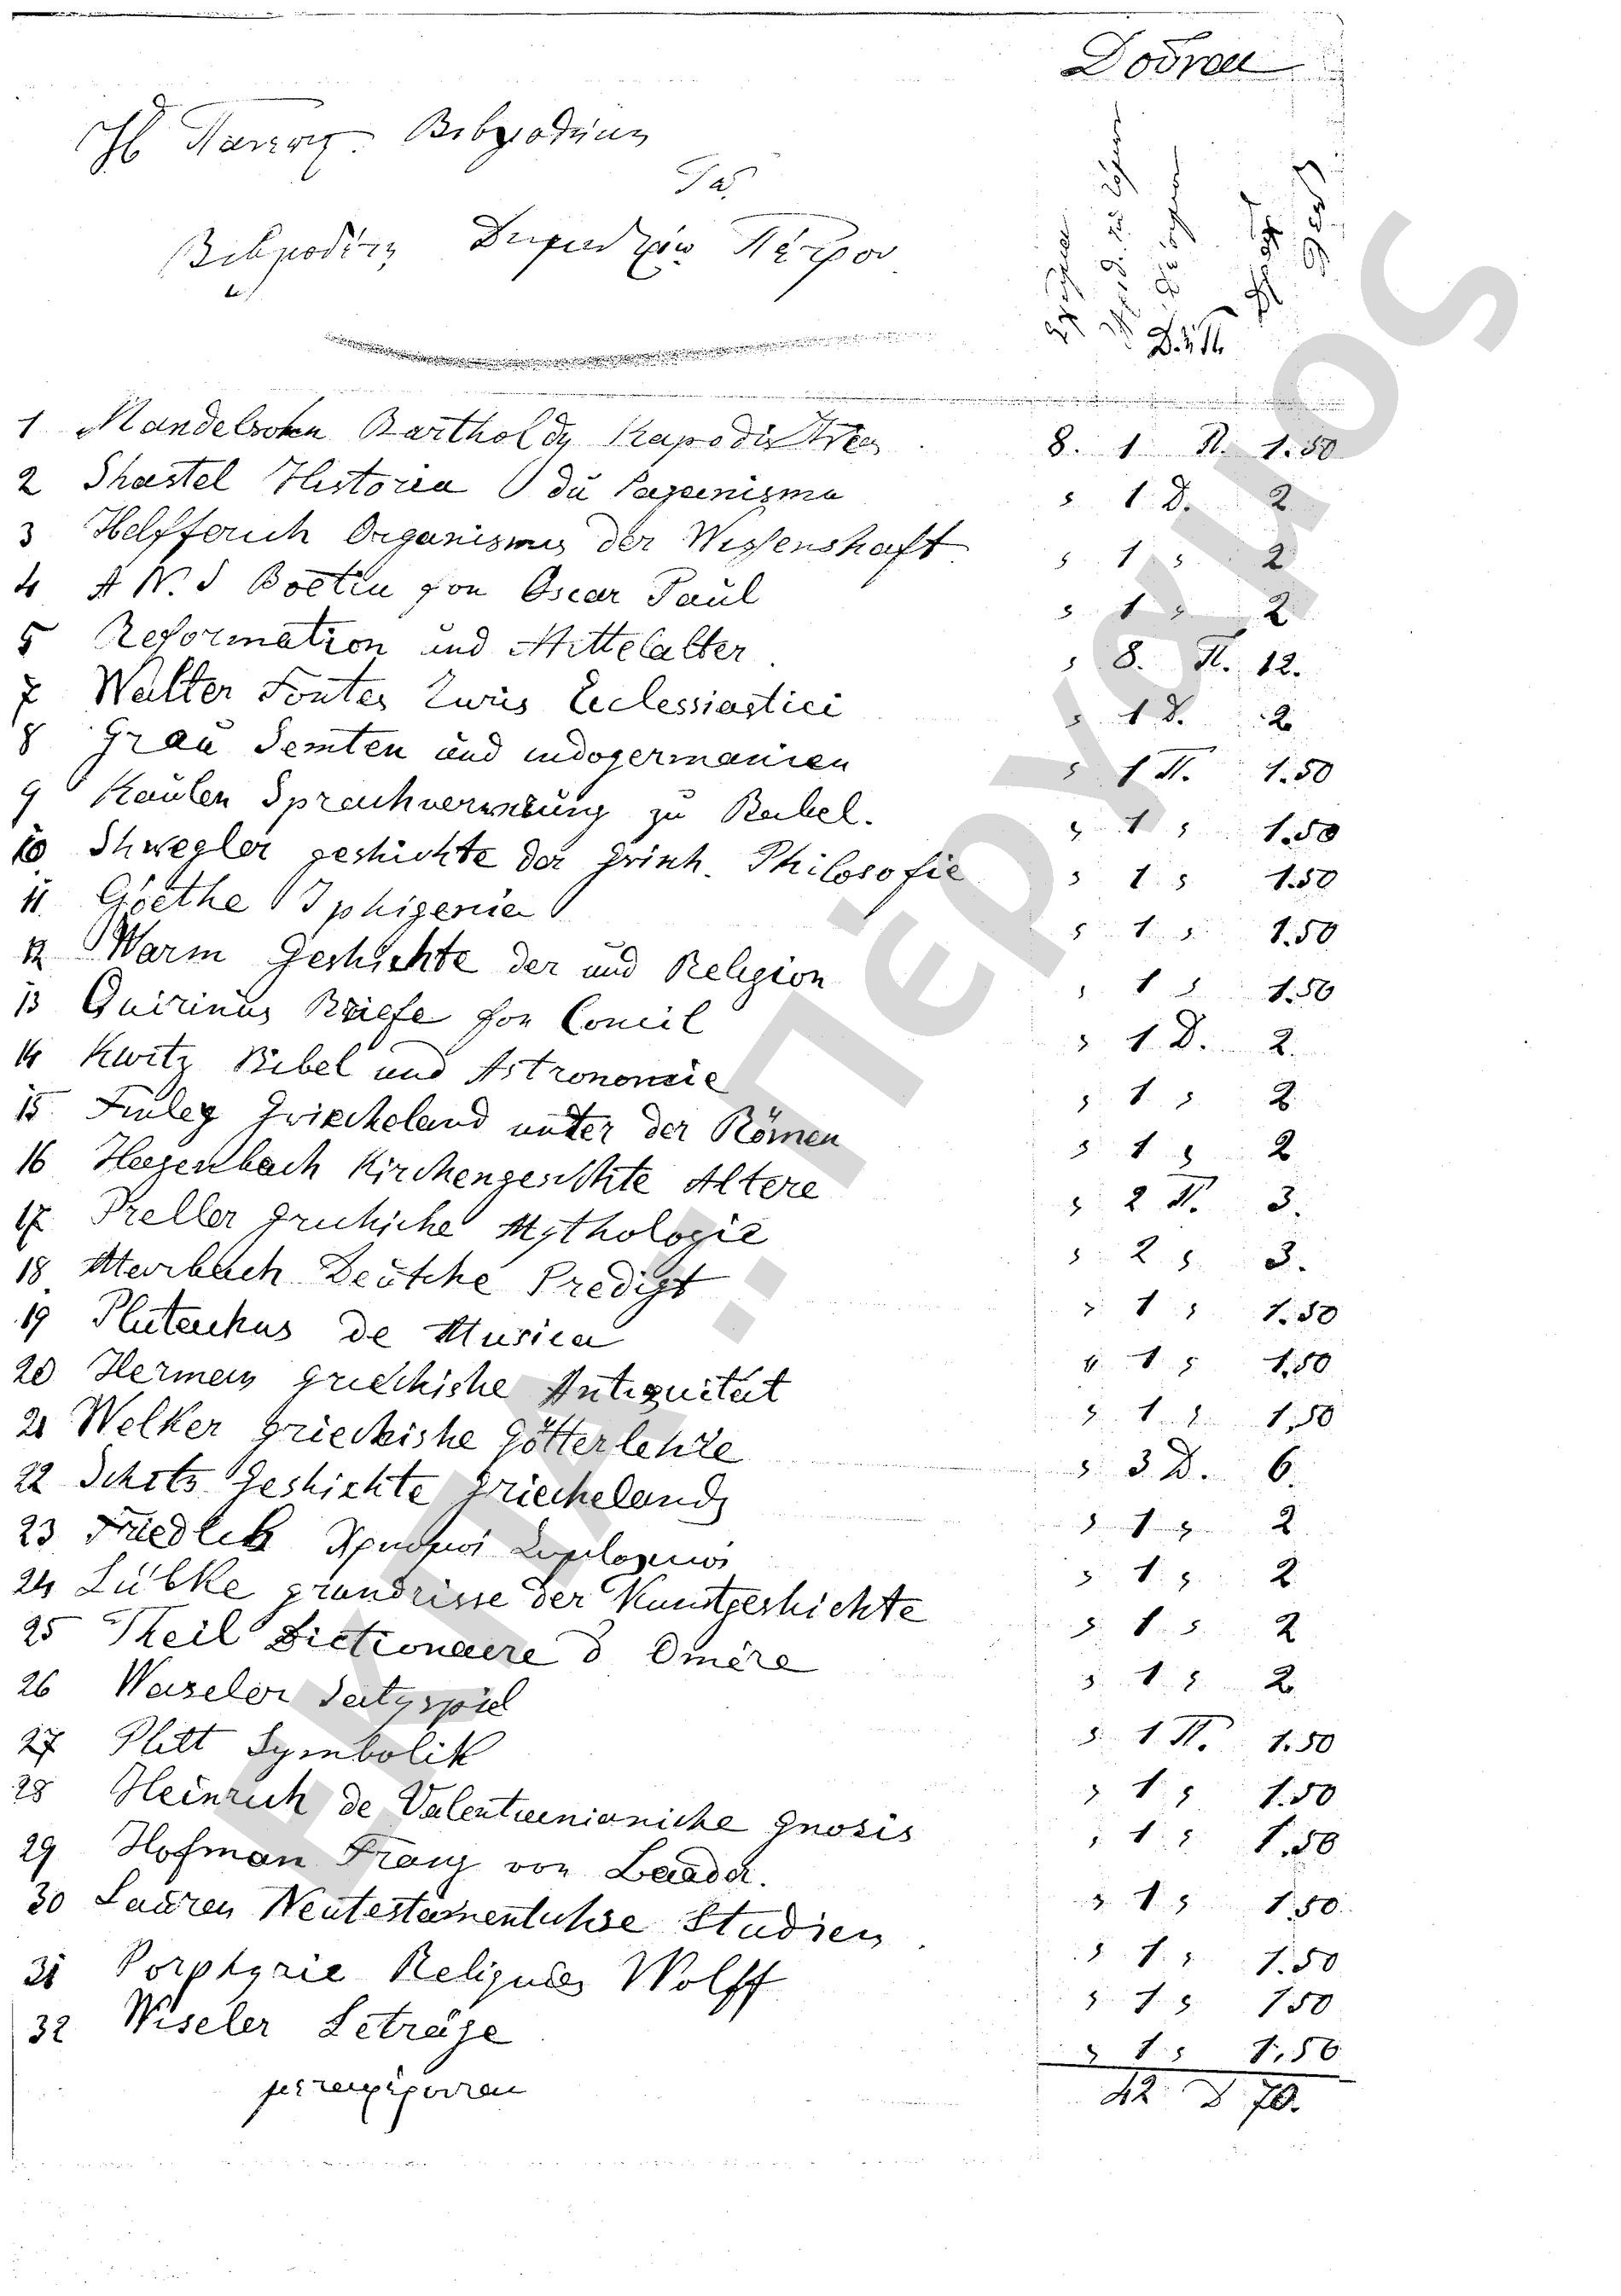 Δοῦναι
Βιβλιοθήκη
Τῷ
Βιβλιοδέτῃ Δημητρίῳ Πέτρου
Δ. ἢ Π.
1 Mandelsohn Bartholdy Kapodistrias 8. 1 Π. 1.50
2 Shastel Historia du Paganisma s 1 Δ. 2
3 Helfferich Organismus der Wissenshaft s 1 s 2
4 A N. S Boetiu fon Oscar Paul s 1 s 2
5 Reformation und Mittelalter s 8. Π. 12.
7 Walter Fontes Iuris Ecclessiastici s 1 Δ. 2
8 Grau Semten und indogermanien s 1 Π. 1.50
9 Kaulen Sprachverwirrung zu Babel. s 1 s 1.50
10 Shwegler geshichte der Grich. Philosofie s 1 s 1.50
11 Goethe Iphigenia s 1 s 1.50
12 Warm Geshichte der und Religion s 1 s 1.50
13 Quirinus Briefe fon Concil s 1 Δ. 2.
14 Kurtz Bibel und Astronomie s 1 s 2
15 Finley Griecheland unter der Römen s 1 s 2
16 Hagenbach Kirchengesichte Altere s 2 Π. 3.
17 Preller Gruhiche Mythologie s 2 s 3.
18 Marbach Deutche Predigt s 1 s 1.50
19 Plutarchus de Musica s 1 s 1,50
20 Herman griechishe Antiquität s 1 s 1,50
21 Welker griechishe Götterlehre s 3 Δ. 6.
22 Schets Geshichte Griechelands s 1 s 2
23 Friedlib Χρησμοὶ Σιβυλλιακοὶ s 1 s 2
24 Lübke grundrisse der Kunstgeshichte s 1 s 2
25 Theil Dictionaere d Omère s 1 s 2
26 Waseler Satyspiel s 1 Π. 1.50
27 Plitt Symbolik s 1 s 1.50
28 Heinrich de Valentinianiche Gnosis s 1 s 1.50
29 Hofman Franz von Baader. s 1 s 1.50
30 Lauren Neutestamentlichse Studien s 1 s 1.50
31 Porphyrie Reliquies Wolff s 1 s 150
32 Wiseler Beträge s 1 s 1,50
μεταφέρονται 42 Δ 70.
ΕΚΠΑ: Πέργαμος